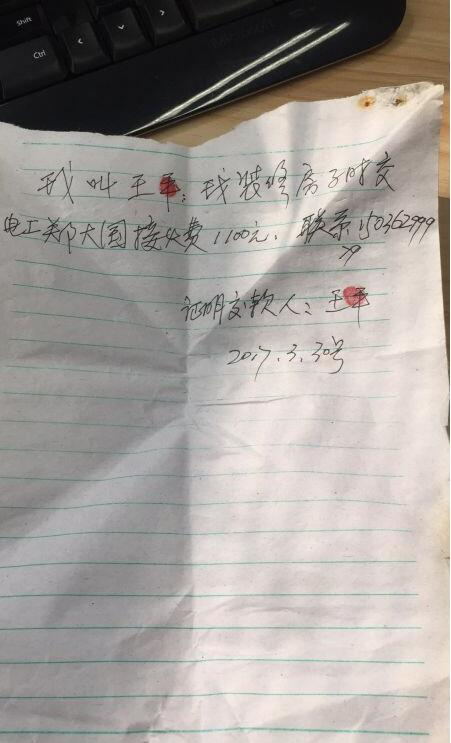 Shift
Ctrl
Microsoft
我叫王平：我装修房子时交
电工郑大国接火费1100元，联系150362999
证明交款人：王平
2017.3.30号